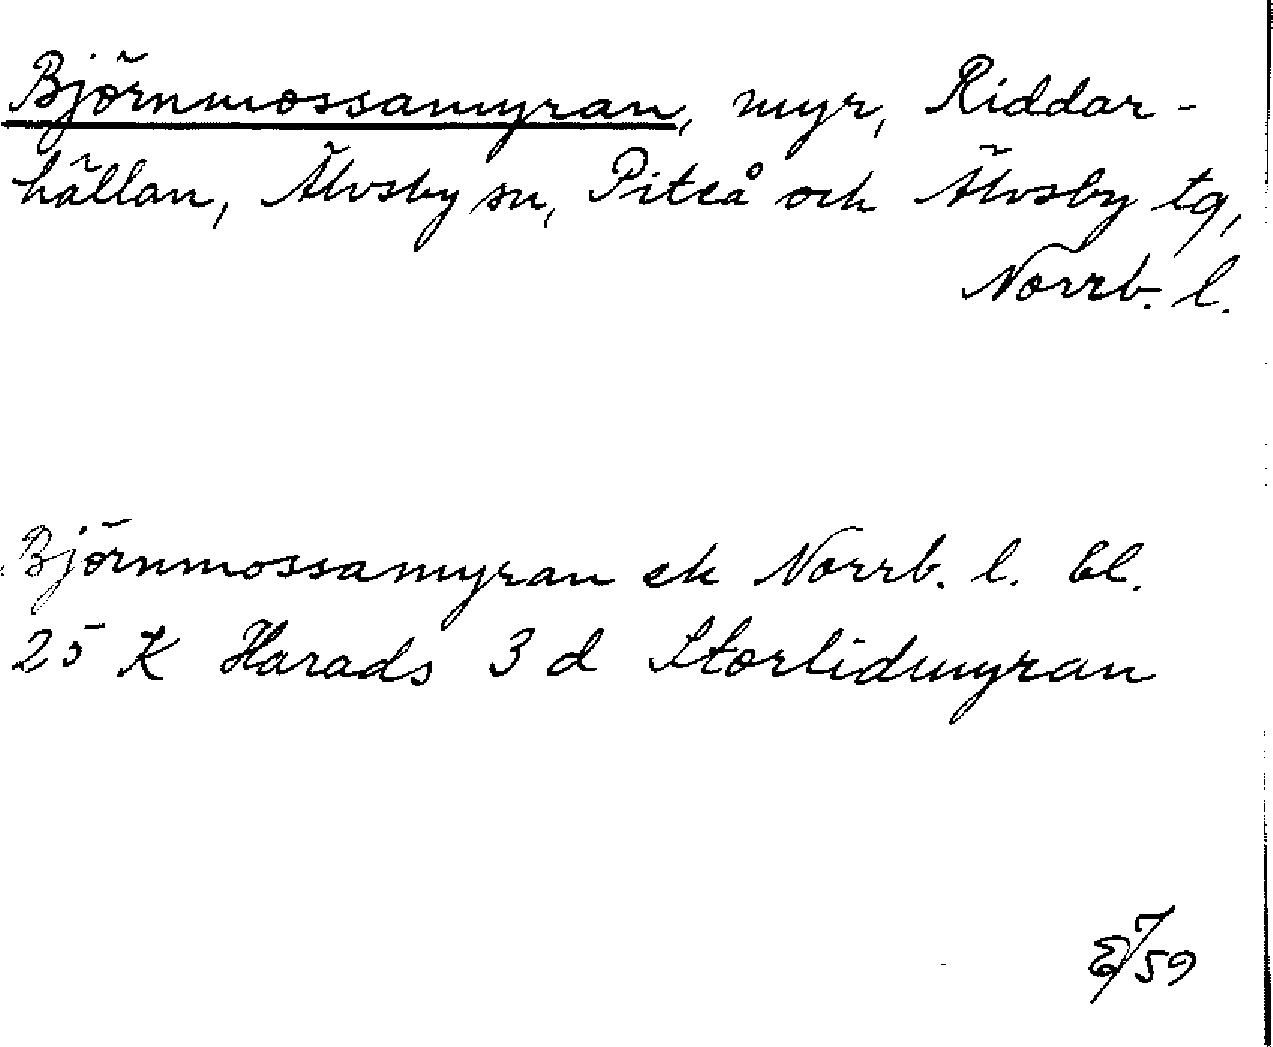 Björnmossamyran, myr, Riddar-
hällan, Älvsby sn, Piteå och Älvsby tg,
Norrb. l.
Björnmossamyran ek Norrb. l. bl.
25 K Harads 3 d Storlidmyran
7/59